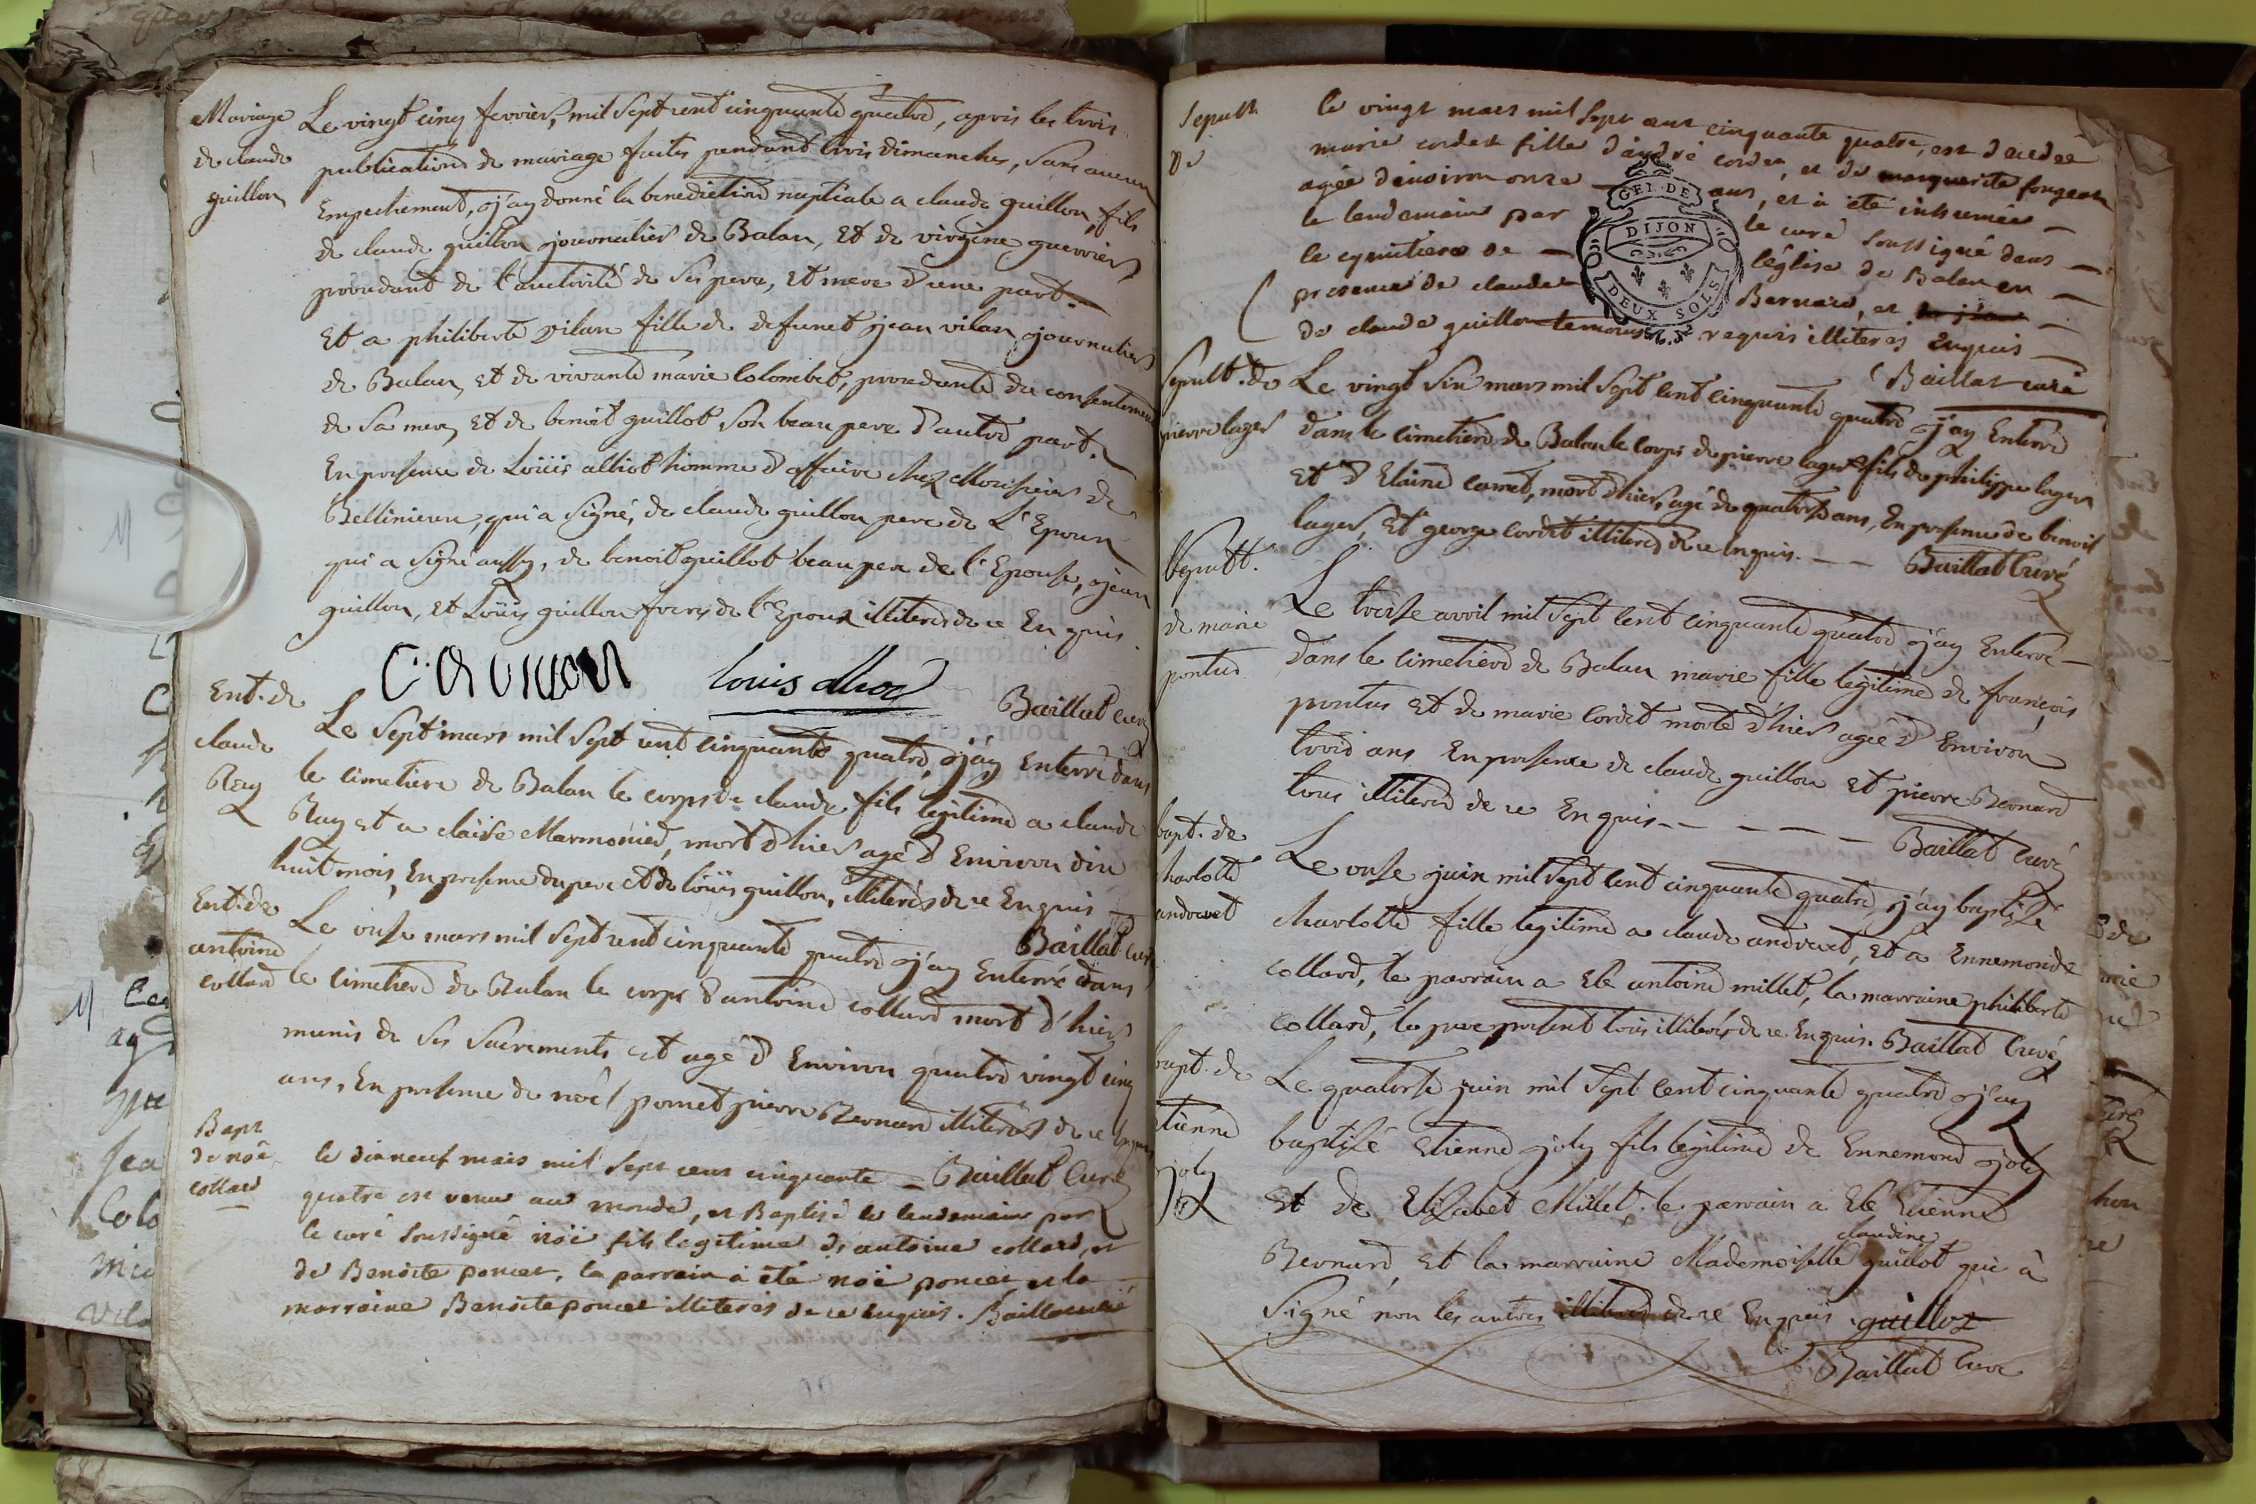 Mariage
de claude
guillon
Le vingt cinq fevrier, mil sept cent cinquante quatre, apres les trois
publications de mariage faites pendant trois dimanches, sans aucun
Empechement, j'ay donné la benediction nuptiale a claude guillon, fils
de claude guillon journalier de Balan, Et de virgine guerrier
procedant de l'authorité de ses pere, et mere d'une part.
Et a philiberte vilan fille de defunct jean vilan journalier
de Balan, et de vivante marie Colombet, procedante du consentement
de sa mere, Et de benoit guillot son beau pere d'autre part.
En presence de Loüis alliot homme d'affaire chez Monsieur de
Bellinieux, qui a signé, de claude guillon pere de L'Epoux
qui a signé aussy, de benoit guillot beau pere de l'Epouse, jean
guillon, et Loüis guillon freres de l'Epoux illiterés de ce Enquis
louis alliot
Baillat curé
Ent. de
claude
Rey
Le Sept mars mil Sept cent cinquante quatre, j'ay Enterré dans
le cimetiere de Balan le corps de claude fils legitime a claude
Rey et a claise Marmonier, mort d'hier agé d'Environ dix
huit mois, En presence du pere et de loüis guillon, illiterés de ce Enquis
Baillat curé
Ent. de
antoine
collard
Le onse mars mil sept cent cinquante quatre j'ay Enterré dans
le cimetiere de Balan le corps d'antoine collard mort d'hier
munis de ses sacrements et agé d'Environ quatre vingt cinq
ans, En presence de noël poncet pierre Bernard illiterés de ce Enquis
Baillat Curé
Bapt
de noë
collard
le dixneuf mars mil sept cent cinquante
quatre est venu au monde, et Baptisé le lendemain par
le curé soussigné noë fils legitime d'antoine collard, et
de Benoite poncet, le parrain a été noë poncet et la
marraine Benoite poncet illiterés de ce enquis. Baillat curé
Sepult.
de
le vingt mars mil sept cent cinquante quatre, est decedée
marie cordet fille d'andré cordet, et de marguerite fongeat
agée d'environ onze ans, et a été inhumée
le lendemain par le curé soussigné dans
le cymitiere de l'église de Balan en
presence de claude Bernard, et
de claude guillon temoins requis illiteres enquis
Baillat curé
GEN. DE
DIJON
DEUX SOLS
Sepult. de
pierre lager
Le vingt six mars mil sept cent cinquante quatre j'ay Enterré
dans le cimetiere de Balan le corps de pierre lager fils de philippe lager
Et d'Elaine comet, mort d'hier, agé de quatorse ans, En presence de benoit
lager, Et george cordet illiteres de ce Enquis.
Baillat Curé
Sepult.
de marie
pontus
Le treise avril mil sept cent cinquante quatre j'ay Enterré
dans le cimetiere de Balan marie fille legitime de françois
pontus Et de marie cordet morte d'hier agée d'Environ
trois ans En presence de claude guillon Et pierre Bernard
tous illiteres de ce Enquis
Baillat Curé
bapt. de
charlotte
androuet
Le onse juin mil sept cent cinquante quatre, j'ay baptisé
charlotte fille legitime a claude androuet, Et a Ennemonde
collard, le parrain a Eté antoine millet, la marraine philiberte
collard, le pere present tous illiterés de ce Enquis. Baillat Curé
bapt. de
etienne
joly
Le quatorse juin mil sept cent cinquante quatre j'ay
baptisé Etienne joly fils legitime de Ennemond joly
Et de Elizabet Millet. le parrain a Eté Etienne
claudine
Bernard, Et la marraine Mademoiselle guillot qui a
Signé non les autres illiteres de ce Enquis guillot
Baillat Curé